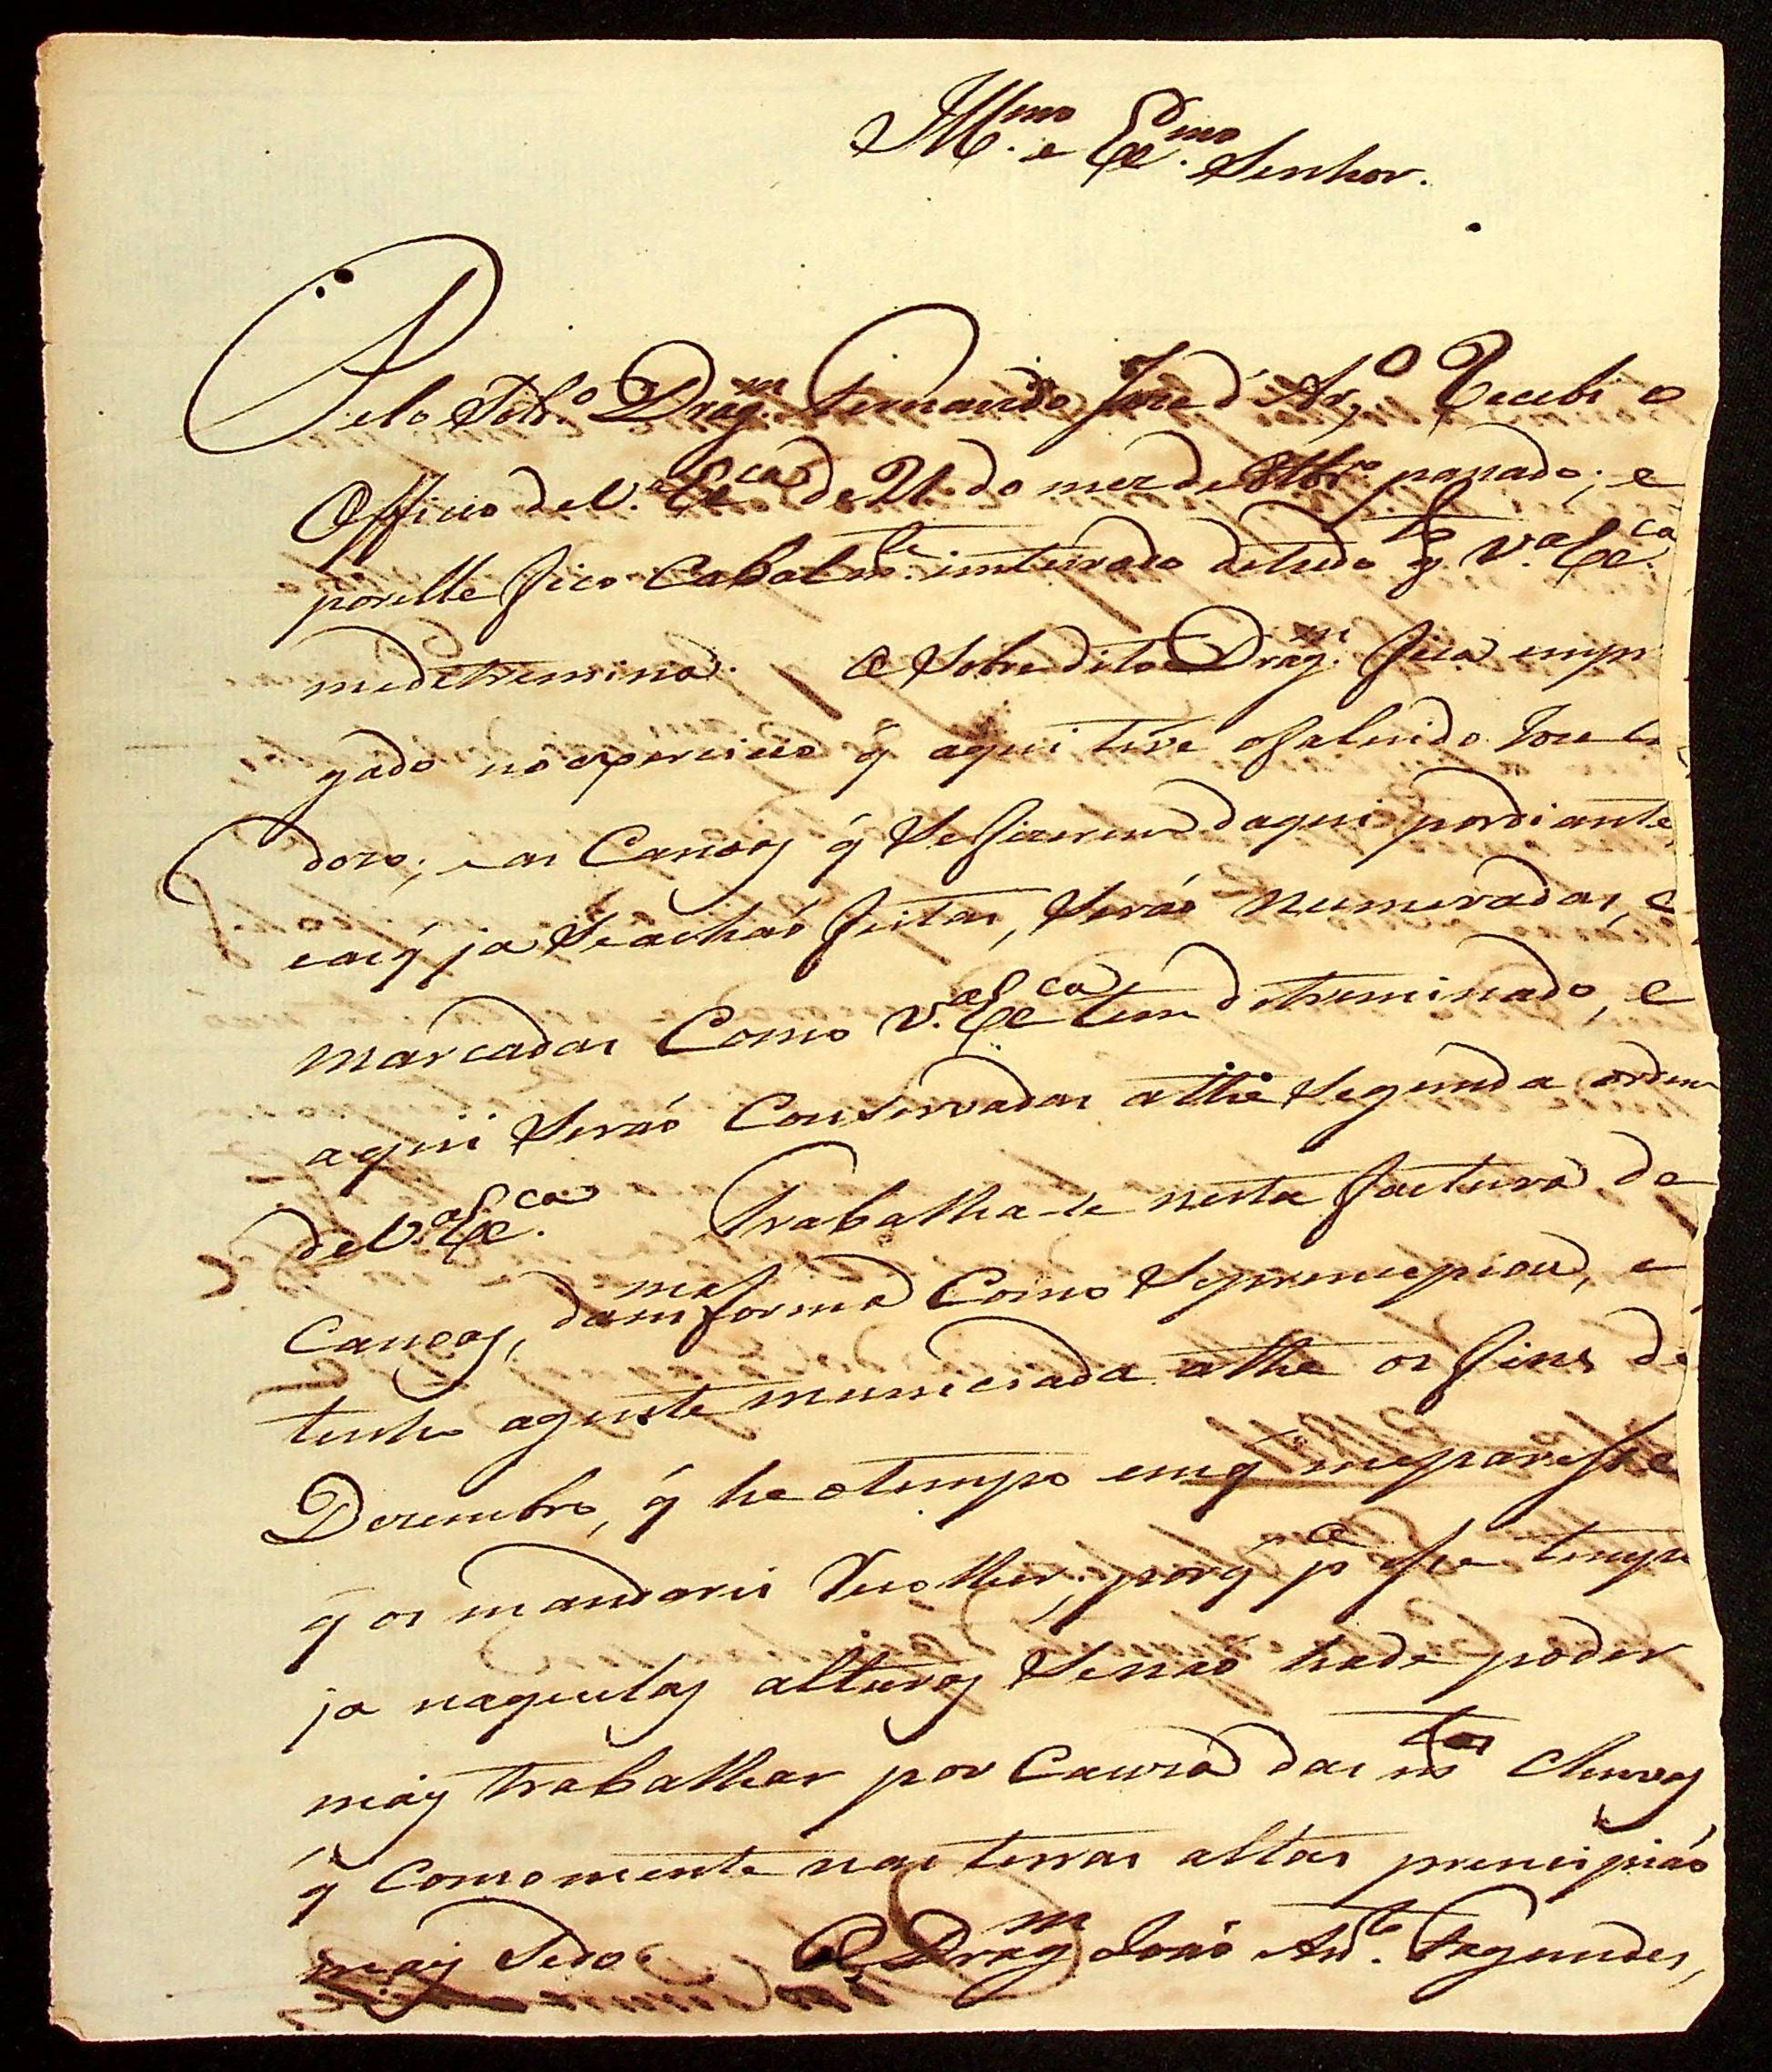 Ill.mo e Ex.mo Senhor.
Pelo Sold.o Drag.m Fernando Joze d'Ar.o Recebi o
Officio de V.a Ex.ca de 21 do mez de 8br.o passado; e
por elle fico Cabalm.te inteirado detudo q̃ V.a Ex.ca
medetremina. O Sobredito Drag.m fica empr
gado no expercicio q̃ aqui teve ofalecido Joze
doro; eas Canoas q̃ Sefizerem daqui pordiante,
easq̃ ja Seachaó feitas, Seráó Numeradas, e
marcadas Como V.a Ex.ca tem detreminado, e
aqui Seraó Conservadas athe Segunda ordem
de V.a Ex.ca Trabalha-se nesta factura de
Canoas, dam.ma forma Como Seprencipiou, e
tenho agente municiada athe os fins de
Dezembro, q̃ he otempo emq̃ meparesse
q̃ os mandarei Recolher; porq̃ p.a esse tempo
ja naquelas alturas Senaó hade poder
mais trabalhar por Cauza das m.tas Chuvas
q̃ Comomente nas terras altas prencipiaó
mais Sedo. O Drag.m Joaó An.to Fagundes,